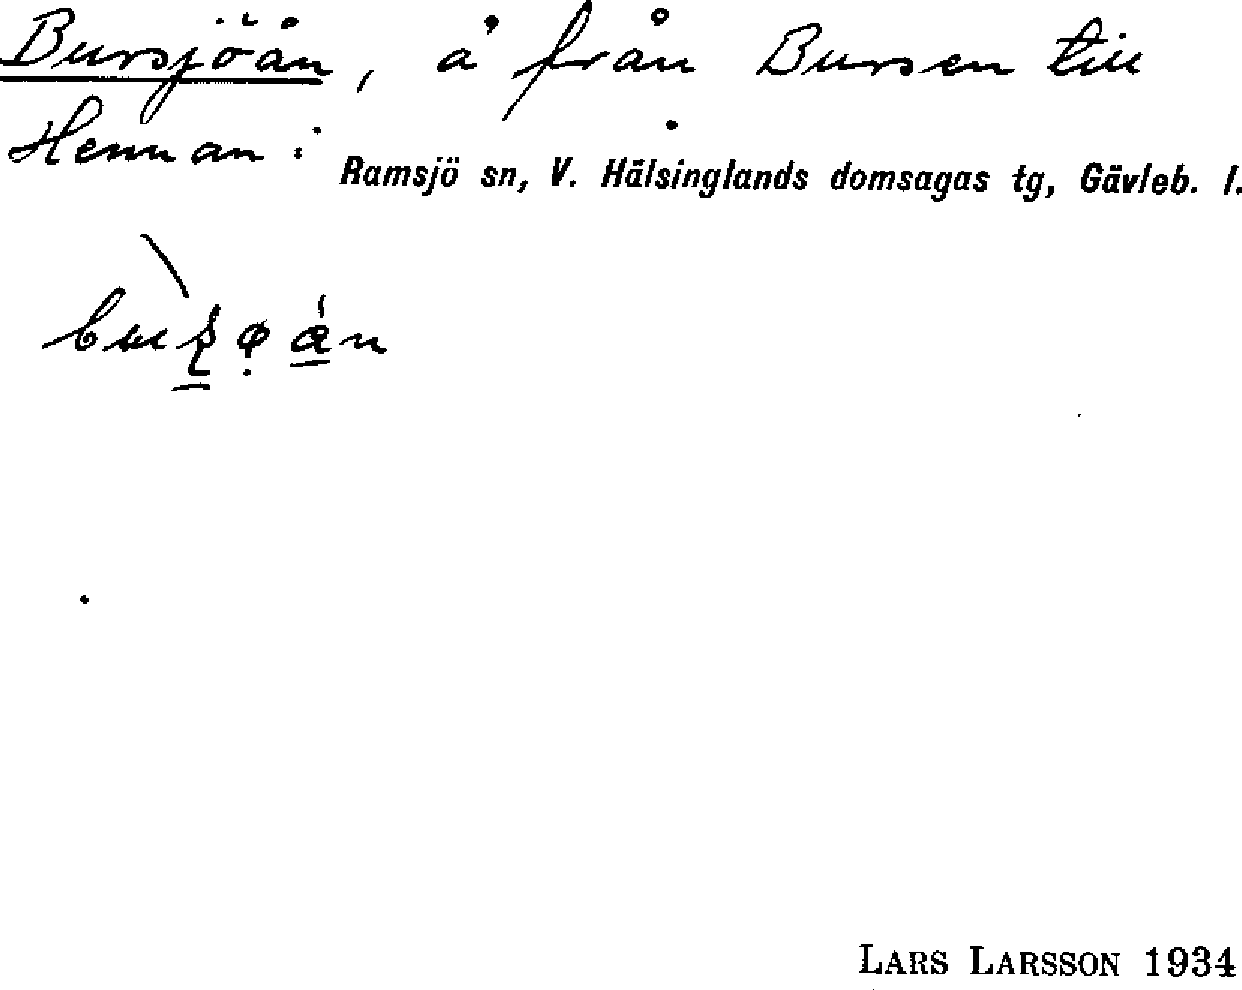 Bursjöån, å från Bursen till
Hennan i Ramsjö sn, V. Hälsinglands domsagas tg, Gävleb. l.
LARS LARSSON 1934